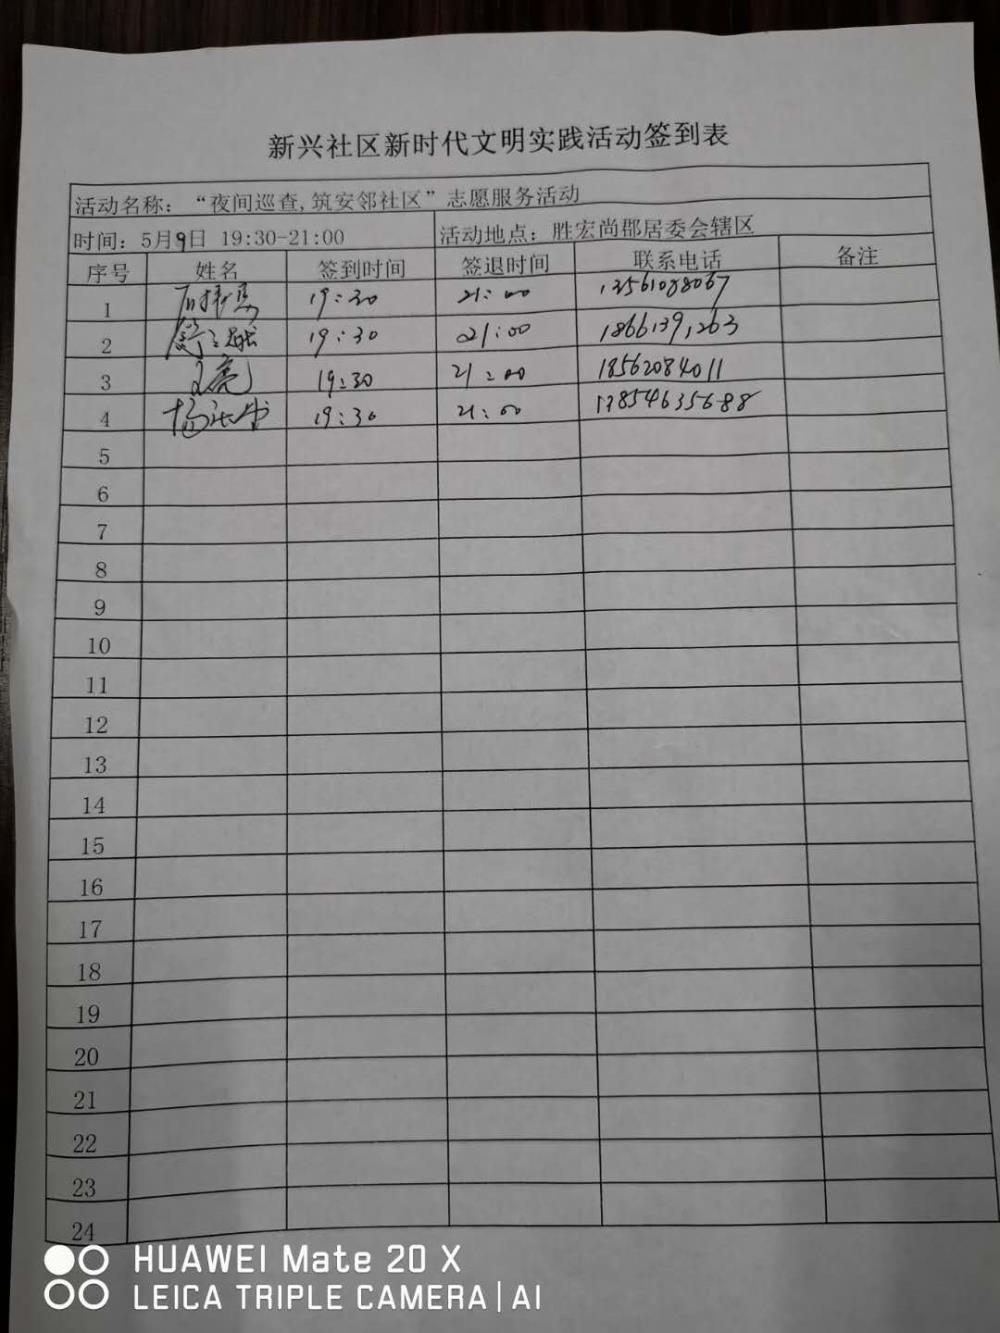 新兴社区新时代文明实践活动签到表
活动名称：“夜间巡查,筑安邻社区”志愿服务活动
时间：5月9日 19:30-21:00 活动地点：胜宏尚郡居委会辖区
序号 姓名 签到时间 签退时间 联系电话 备注
1 19:30 21:00 13561088067
2 19:30 21:00 18661391263
3 文亮 19:30 21:00 18562084011
4 19:30 21:00 17854635688
5
6
7
8
9
10
11
12
13
14
15
16
17
18
19
20
21
22
23
24
HUAWEI Mate 20 X
LEICA TRIPLE CAMERA | AI